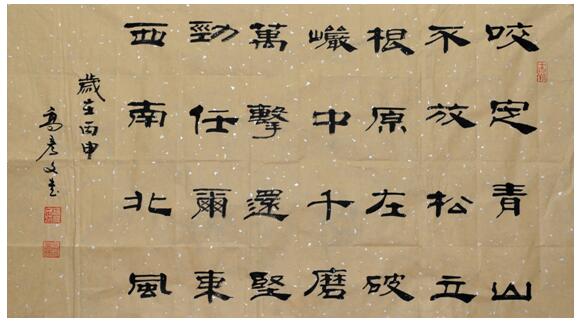 咬定青山
不放松立
根原左破
巖中千磨
萬擊還堅
勁任爾東
西南北風
歲在丙申
高彦文書